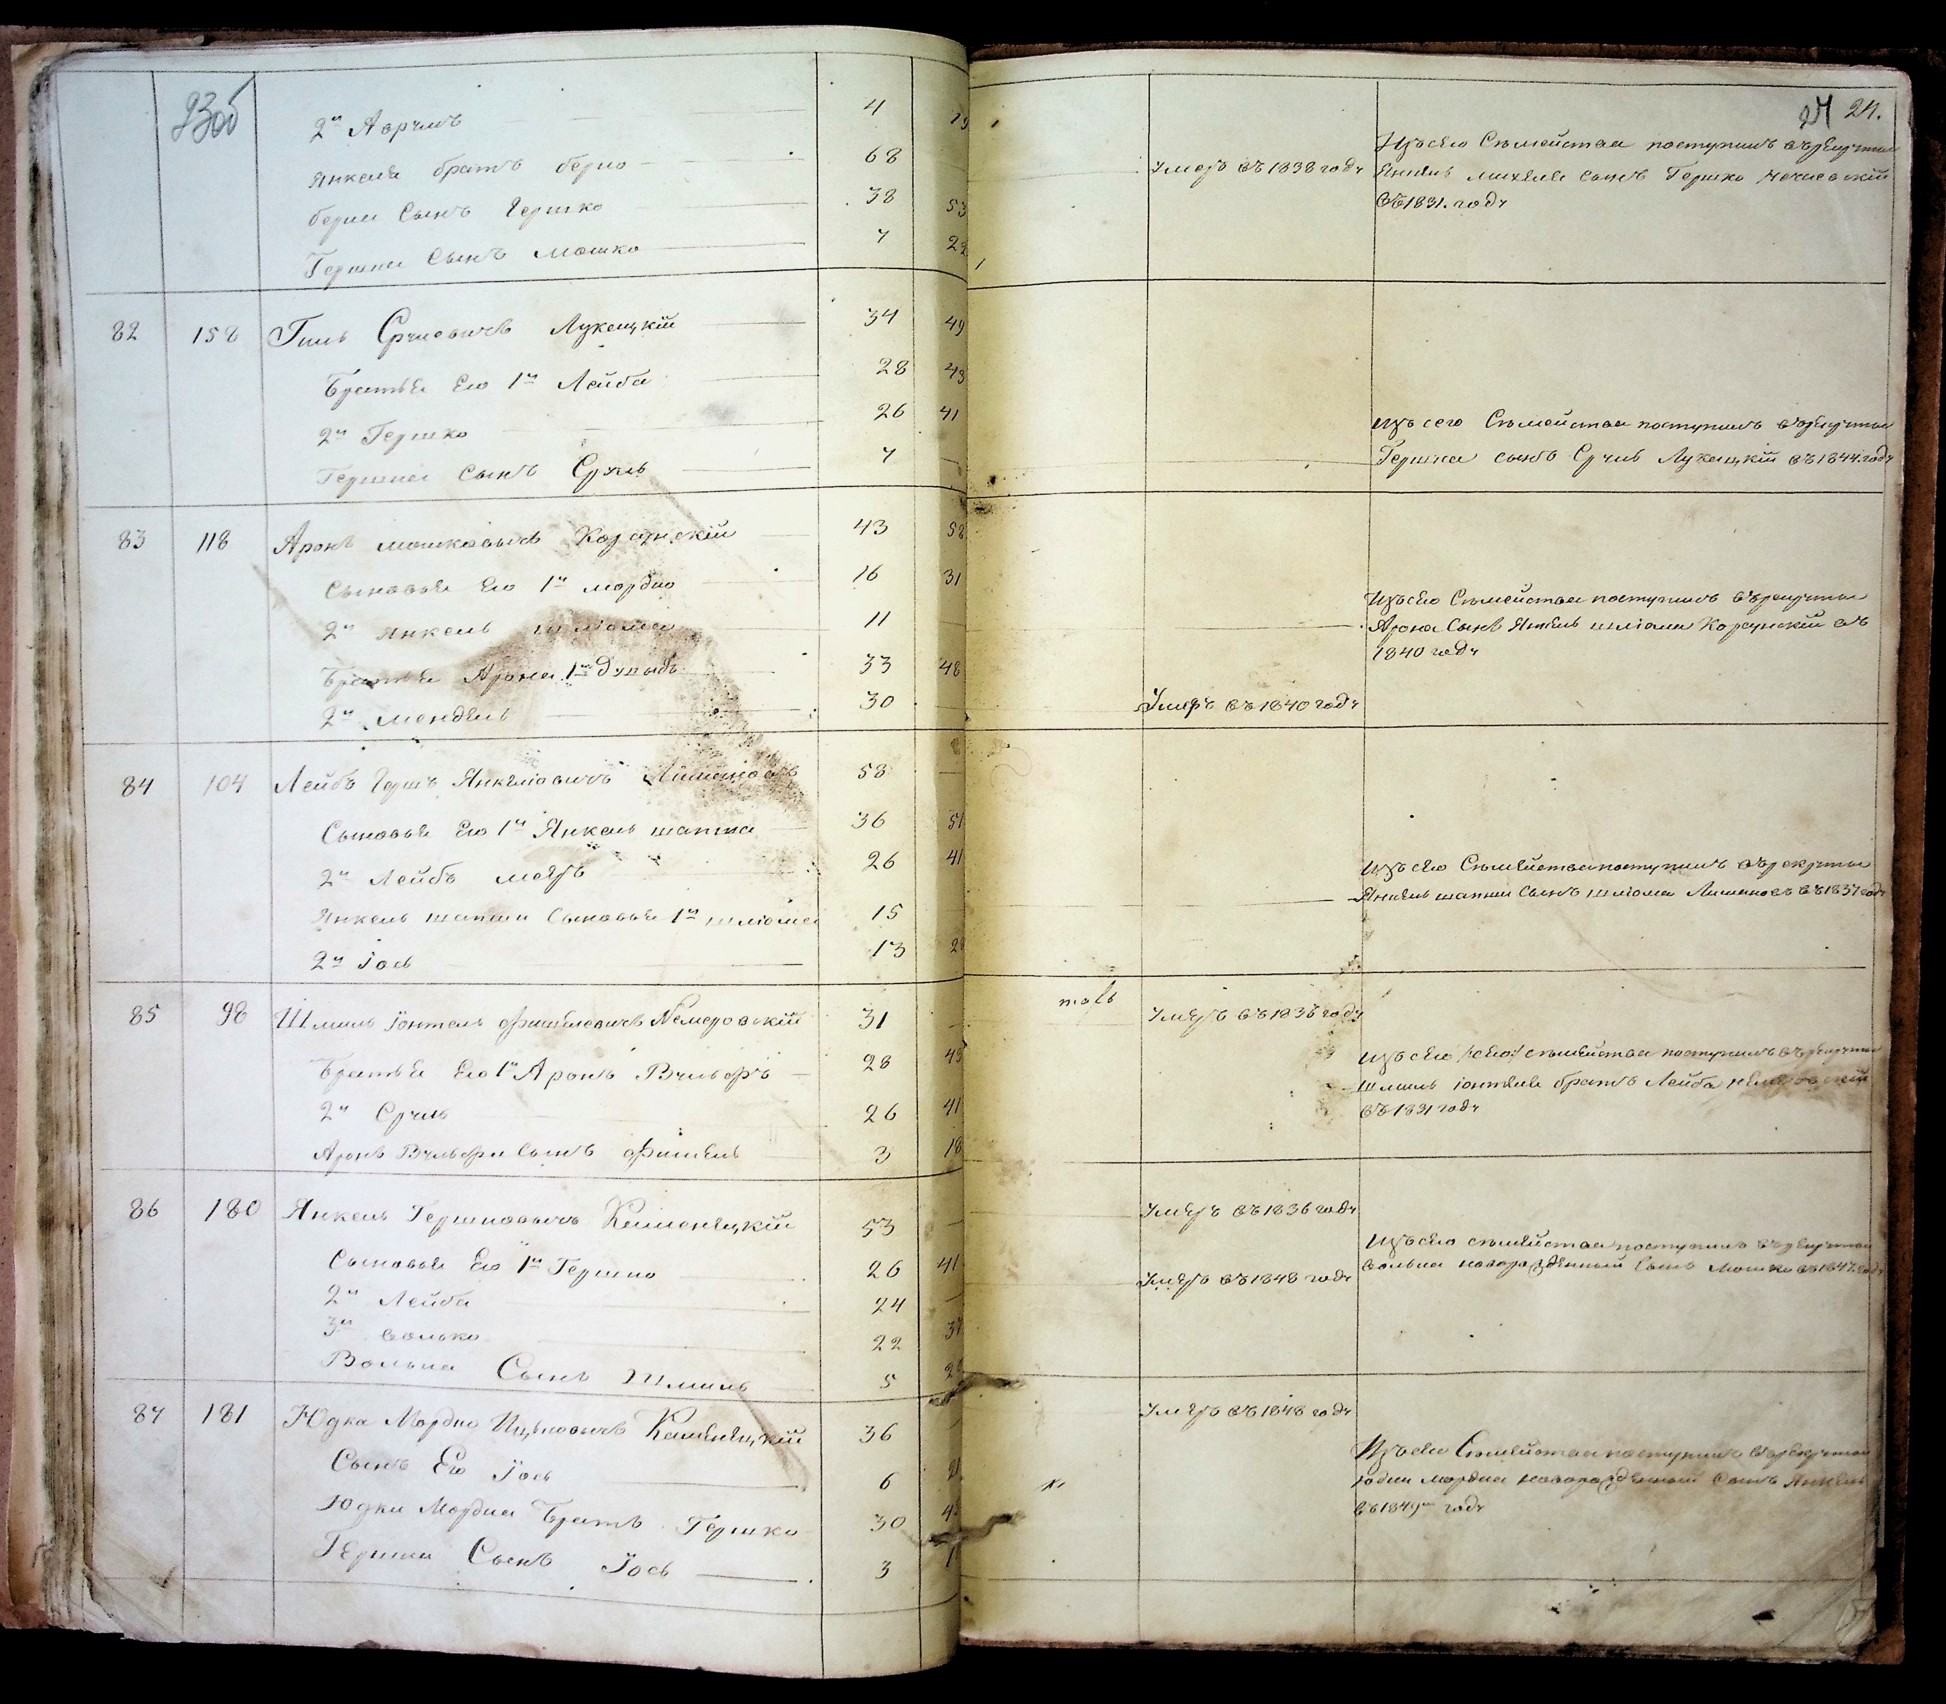 23об
2й Аврумъ 4
Янкеля братъ берко 68
берки Сынъ Гершко 38 53
Гершки Сынъ Мошко 7 22
82 158 Гиль Сруловичъ Лукецкій 34 49
Братья Его 1й Лейба 28 43
2й Гершко 26 41
Гершки Сынъ Сруль 7
83 118 Аронъ мошковичъ Корсунскій 43 58
Сыновья Его 1й мордко 16 31
2й Янкель шлiома 11
Братья Арона 1й Дувыдъ 33 48
2й мендель 30
84 104 Лейбъ Гершъ Янкеліовичъ 58
Сыновья Его 1й Янкель шапша 36 51
2й Лейбъ меѣръ 26 41
Янкель шапши Сыновья 1й шліома 15
2й Іось 13 28
85 98 Шмиль Іонтель Фишелевичъ Немеровскій 31
Братья Его 1й Аронъ Вульфъ 28 43
2й Сруль 26 41
Аронъ Вульфа Сынъ Фишель 3 18
86 180 Янкель Гершковичъ Каменецкій 53
Сыновья Его 1й Гершко 26 41
2й Лейба 24
3й волько 22 37
Волька Сынъ Шмиль 5
87 181 Юдка Мордко Ицковичъ Каменецкій 36
Сынъ Его Іось 6 21
Юдки Мордка Братъ Гершко 30 45
Гершки Сынъ Іось 3
24 24.
Умеръ въ 1838 году
Изъ сего Семейства поступилъ въ рекруты
Янкель михеля сынъ Гершко
въ 1831. году
изъ сего Семейства поступилъ въ рекруты
Гершка сынъ Сруль Лукецкій въ 1844 году
Изъ сего Семейства поступилъ въ рекруты
Арона Сынъ Янкель шліома Корсунскій въ
1840 году
Умеръ въ 1840 году
изъ сего Семейства поступилъ въ рекруты
Янкель шапши Сынъ шліома Лишновъ въ 1837 году
тотъ
Умеръ въ 1836 году
изъ сего /сего/ семейства поступилъ въ рекруты
шмиль іонтеля братъ Лейба немеровскій
въ 1831 году
Умеръ въ 1836 году
изъ сего семейства поступилъ въ рекруты
волька новорожденный Сынъ Мошко въ 1847 году
Умеръ въ 1848 году
Умеръ въ 1848 году
Изъ сего Семейства поступилъ въ рекруты
юдки мордка новорожденный Сынъ Янкель
въ 1849м году